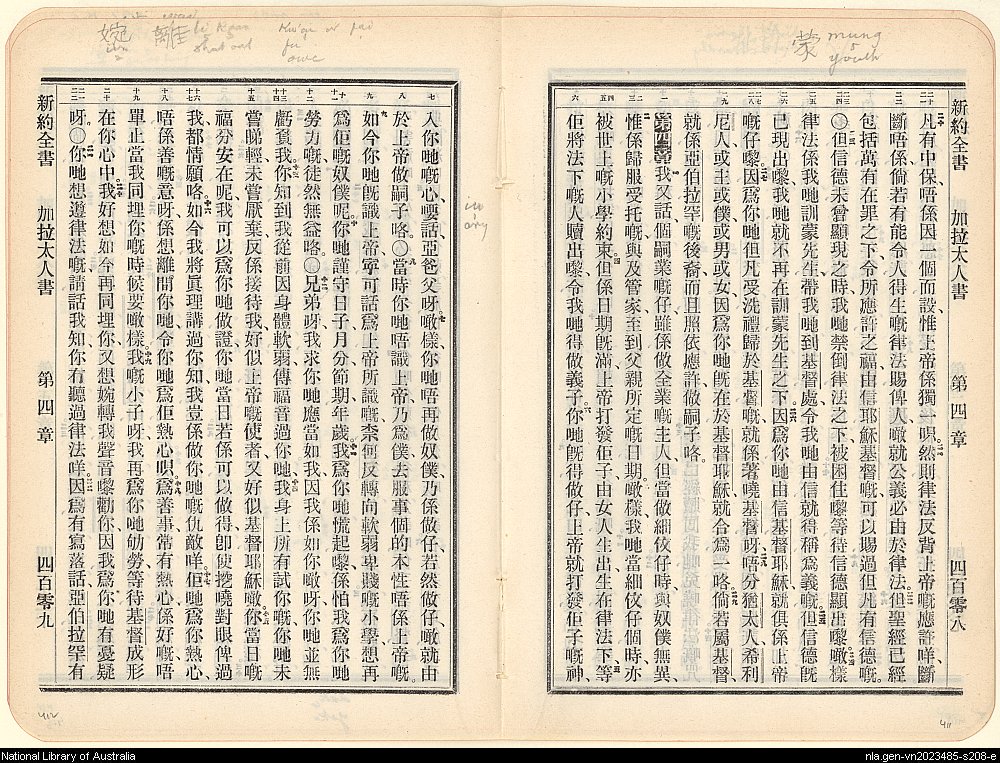 新約全書　加拉太人書　第四章　四百零八
凡有中保唔係因一個而設惟上帝係獨一唄然則律法反背上帝嘅應許咩斷
斷唔係倘若有能令人得生嘅律法賜俾人噉就公義必由於律法但聖經已經
包括萬有在罪之下令所應許之福由信耶穌基督嘅可以賜過但凡有信德嘅
○但信德未曾顯現之時我哋禁倒律法之下被困住嚟等待信德顯出嚟噉樣
律法係我哋訓蒙先生帶我哋到基督處令我哋由信就得稱為義嘅但信德旣
已現出嚟我哋就不再在訓蒙先生之下因為你哋由信基督耶穌就俱係上帝
嘅仔嚟因為你哋但凡受洗禮歸於基督嘅就係著嘵基督呀唔分猶太人希利
尼人或主或僕或男或女因爲你哋旣在於基督耶穌就合爲一咯倘若屬基督
就係亞伯拉罕嘅後裔而且照依應許做嗣子咯
第四章我又話個嗣業嘅仔雖係做全業嘅主人但當做細伩仔時與奴僕無異
惟係歸服受托嘅與及管家至到父親所定嘅日期噉樣我哋當細伩仔個時亦
被世上嘅小學約束但係日期旣滿上帝打發佢子由女人生出生在律法下等
佢將法下嘅人贖出嚟令我哋得做義子你哋旣得做仔上帝就打發佢子嘅神
入你哋嘅心嚶話亞爸父呀噉樣你哋唔再做奴僕乃係做仔若然做仔噉就由
於上帝做嗣子咯○當時你哋唔識上帝乃爲僕去服事個的本性唔係上帝嘅
如今你哋旣識上帝寧可話爲上帝所識嘅柰何反轉向軟弱卑賤嘅小學想再
爲佢嘅奴僕呢你哋謹守日子月分節期年歲我爲你哋慌起嚟係怕我爲你哋
勞力嘅徒然無益咯○兄弟呀我求你哋應當如我因我係如你噉呀你哋並無
虧負我你知到我從前因身體軟弱傳福音過你哋我身上所有試你嘅你未
嘗睇輕未嘗厭棄反係接待我好似上帝嘅使者又好似基督耶穌噉你當日嘅
福分安在呢我可以爲你哋做證你哋當日若係可以做得卽使挖嘵對眼俾過
我都情願咯如今我將眞理講過你知我豈係做你哋嘅仇敵咩佢哋爲你熱心
唔係善嘅意呀係想離間你哋令你哋爲佢熱心唄爲善事常有熱心係好嘅唔
單止當我同埋你嘅時候要噉樣我嘅小子呀我再爲你哋劬勞等待基督成形
在你心中我好想如今再同埋你又想婉轉我聲音嚟勸你因我爲你哋有憂疑
呀○你哋想遵律法嘅請話我知你有聽過律法咩因爲有寫落話亞伯拉罕有
新約全書　加拉太人書　第四章　四百零九
蒙 mung youth
離 li
婉
411
412
National Library of Australia
nla.gen-vn2023485-s208-e